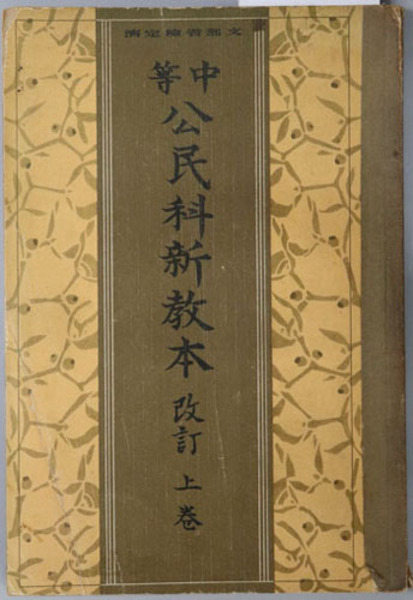 文部省檢定濟
中等
公民科新教本 改訂 上卷